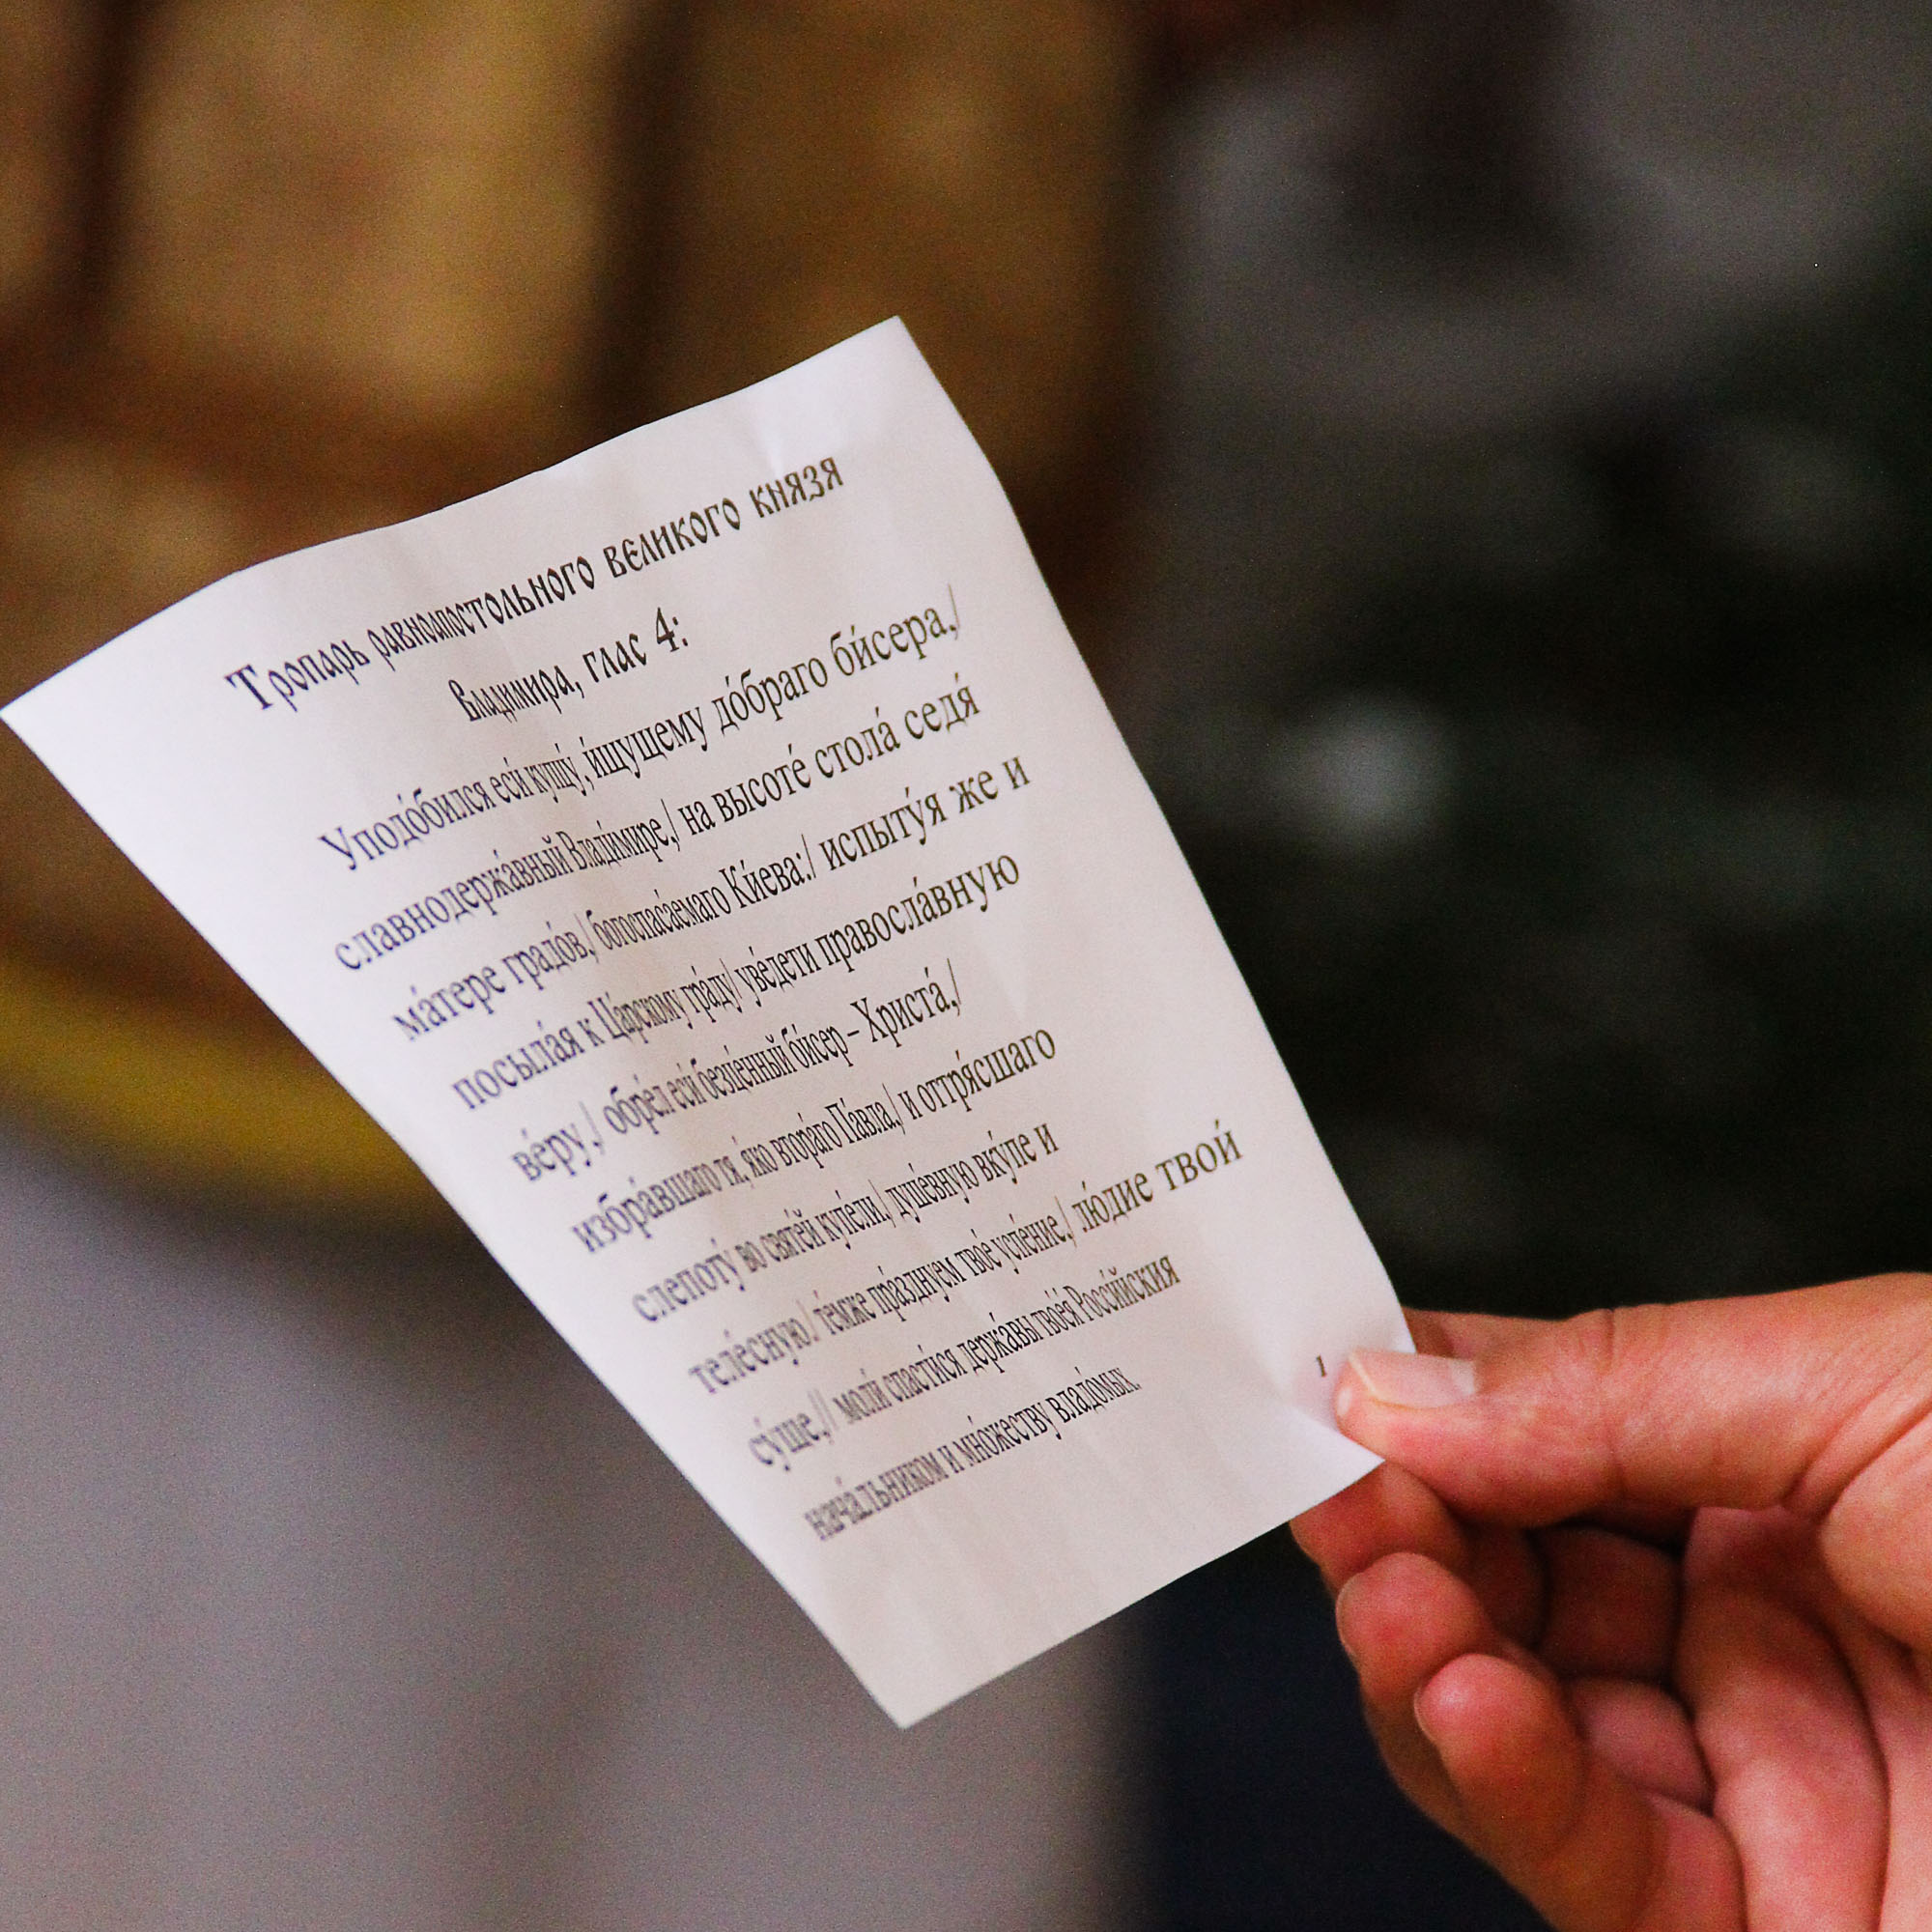 Тропарь равноапостольного великого князя
Владимира, глас 4:
Уподо́бился еси́ купцу́, и́щущему до́браго би́сера,/
славнодержа́вный Влади́мире,/ на высоте́ стола́ седя́
ма́тере градо́в,/ богоспаса́емаго Ки́ева:/ испыту́я же и
посыла́я к Ца́рскому гра́ду/ уве́дети правосла́вную
ве́ру,/ обре́л еси́ безце́нный би́сер – Христа́,/
избра́вшаго тя, я́ко втора́го Па́вла,/ и оттря́сшаго
слепоту́ во святе́й купе́ли,/ душе́вную вку́пе и
теле́сную./ те́мже пра́зднуем твое́ успе́ние,/ лю́дие твои́
су́ще,// моли́ спасти́ся держа́вы твоея́ Росси́йския
нача́льником и мно́жеству владо́мых.
1